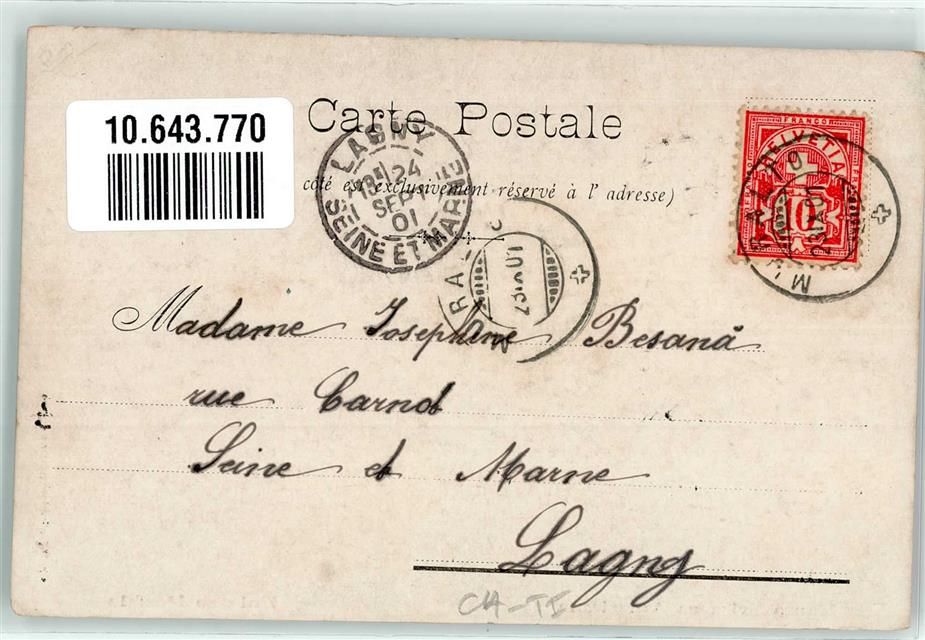 10.643.770
Carte Postale
côté est exclusivement réservé à l' adresse)
LAGNY
24
SEPT
01
SEINE ET MARNE
FRANCO
HELVETIA
10
Madame Josephine Besanà
rue Carnot
Seine et Marne
Lagny
CH-TI